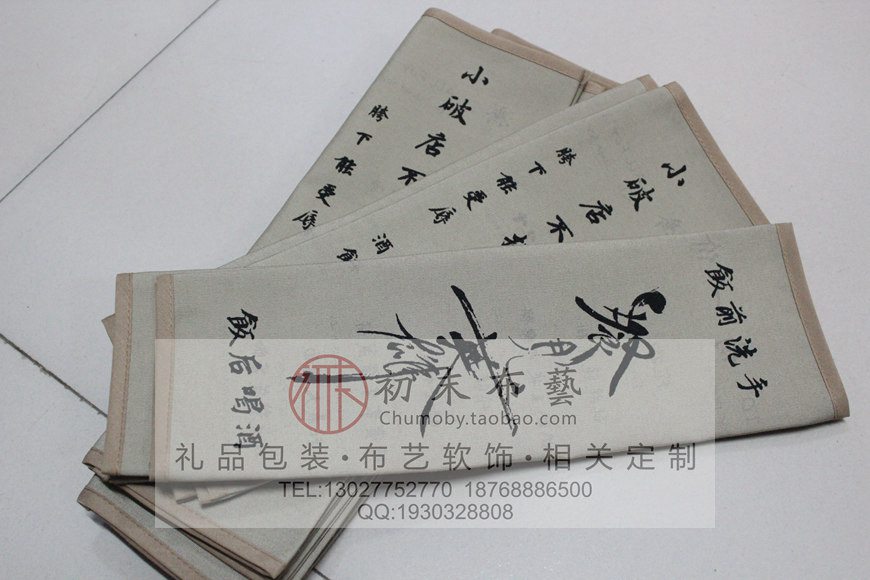 小破店不
胯下能受辱
酒
小破店不
胯下能受辱
飯前洗手
飯后喝酒
初末布藝
Chumoby.taobao.com
礼品包装·布艺软饰·相关定制
TEL:13027752770 18768886500
QQ:1930328808